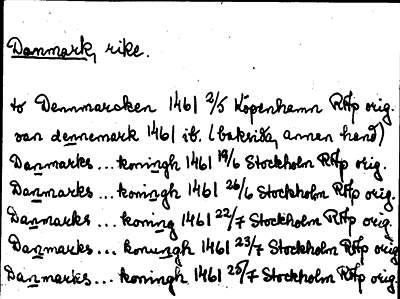 Danmark, rike.
to Dennmarcken 1461 2/5 Köpenhamn RAp orig.
van dennemark 1461 ib. (baksida, annan hand)
Danmarks... koningh 1461 19/6 Stockholm RAp orig.
Danmarks... koningh 1461 26/6 Stockholm RAp orig.
Danmarks... koning 1461 22/7 Stockholm RAp orig.
Danmarks... konungh 1461 23/7 Stockholm RAp orig
Danmarks... koningh 1461 25/7 Stockholm RAp orig.